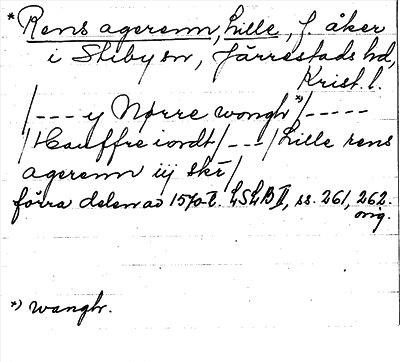 * Rens agerenn, Lille, f. åker
i Stiby sn, Järrestads hd,
Krist. l.
/--- y Nørre wongh *) /-----
/Hauffre iordt/---/Lille rens
agerenn iij skr/
förra delen av 1570-t. LSLB II, ss. 261, 262.
orig.
*) wanghr.